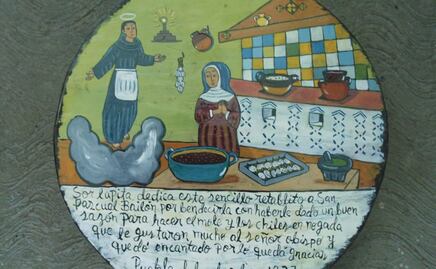 Sor lupita dedica este sencillo retablito a San
Pascual Bailón por bendecirla con haberle dado un buen
sazon para hacer el mole y los chiles en nogada
que le gustaron mucho al señor obispo y
quedó encantado por lo queda gracias
Puebla de los